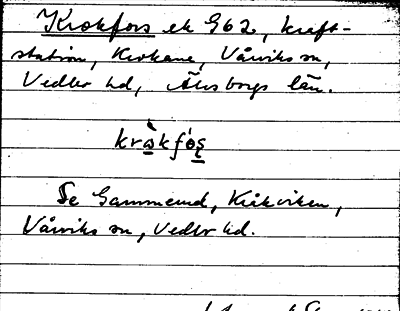 Krokfors ek 962, kraft-
station, Krokane, Vårviks sn,
Vedbo hd, Älvsborgs län.
kråkfo̱s̱
Se Gammelrud, Kråkviken,
Vårviks sn, Vedbo hd.